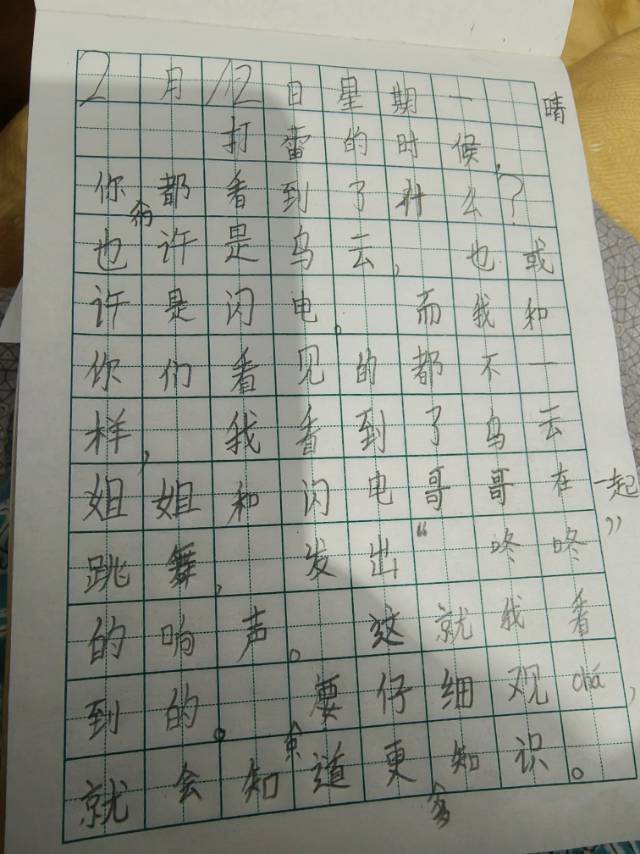 2月12日星期一 晴
打雷的时候,
你们都看到了什么?
也许是乌云,也或
许是闪电。而我和
你们看见的都不一
样,我看到了乌云
姐姐和闪电哥哥在一起
跳舞,发出“咚咚”
的响声。这就我看
到的。要仔细观chá,
就会知道更多知识。